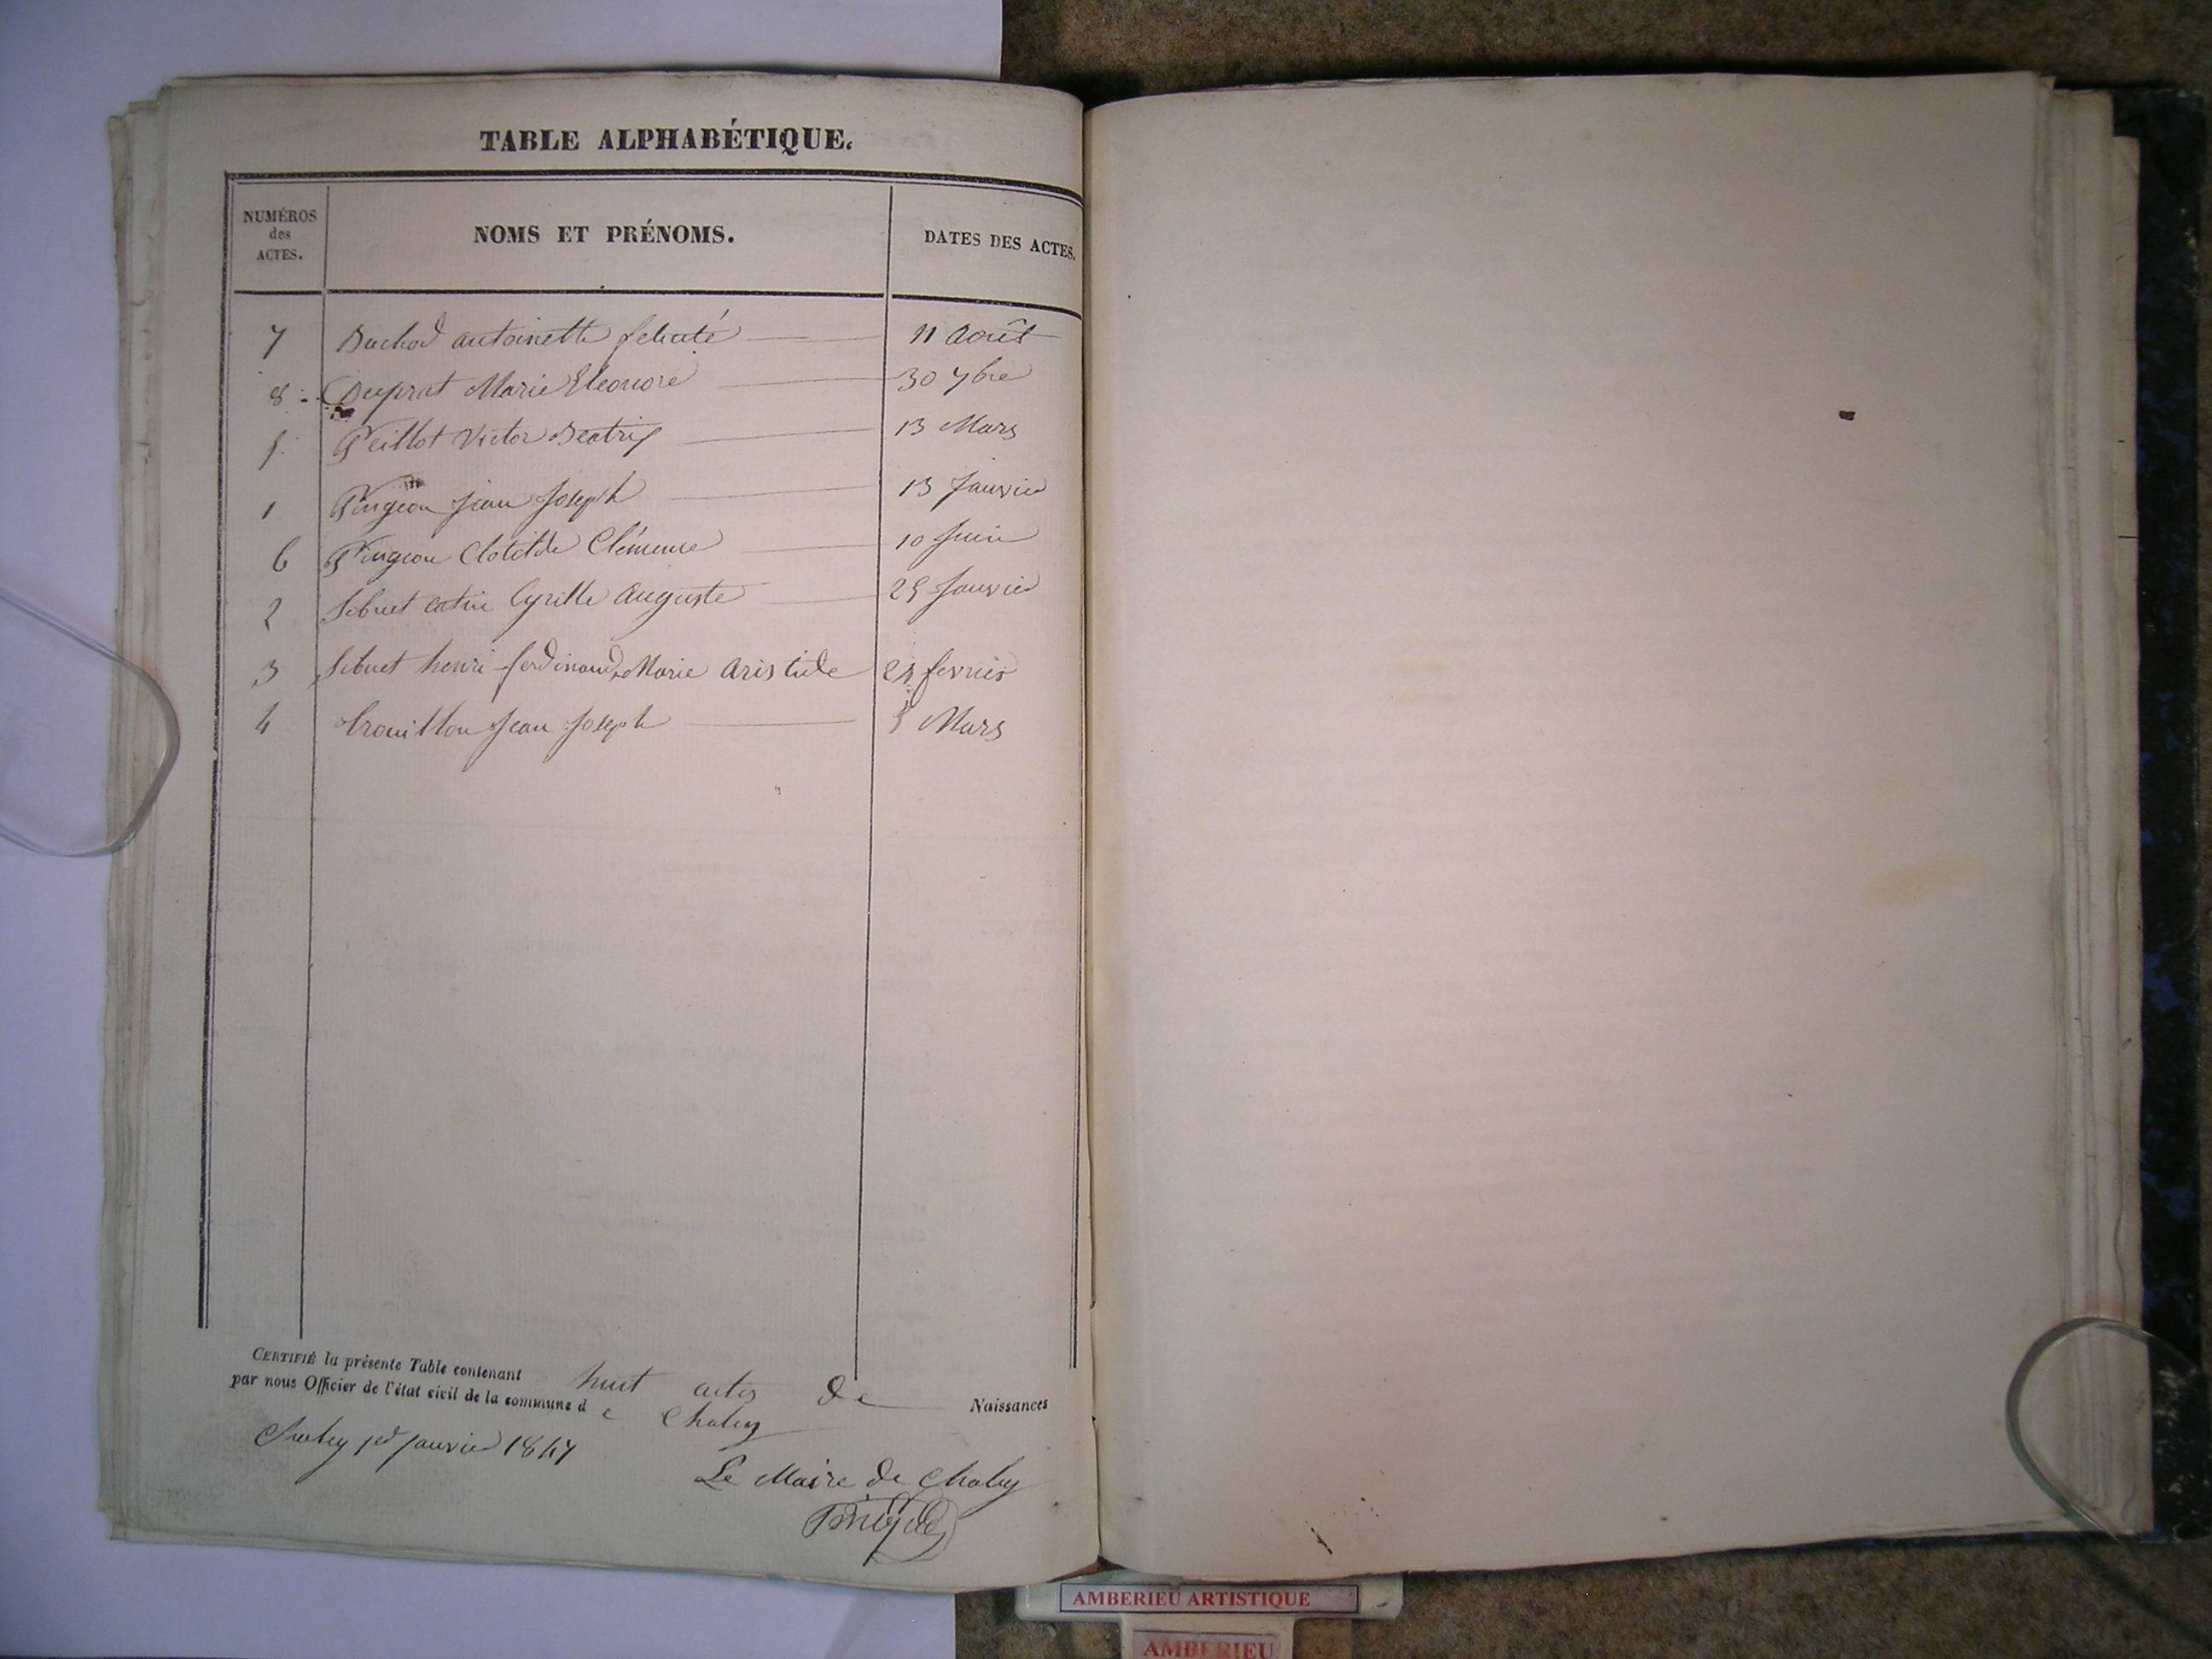 TABLE ALPHABÉTIQUE.
NUMÉROS
des
ACTES.
NOMS ET PRÉNOMS.
DATES DES ACTES.
7 Buchod antoinette felicité 11 Août
8 Duprat Marie Eléonore 30 7bre
5 Peillot Victor Beatrix 13 Mars
1 Pingeon Jean Joseph 13 Janvier
6 Pingeon Clotilde Clémence 10 Juin
2 Sibuet Cyrille Auguste 25 Janvier
3 Sibuet henri ferdinand Marie aristide fevrier
4 trouillon Jean Joseph 5 Mars
CERTIFIÉ la présente Table contenant huit actes de Naissances
par nous Officier de l'état civil de la commune d e Chaley
Chaley 1er janvier 1847
Le Maire de Chaley
AMBERIEU ARTISTIQUE
AMBERIEU